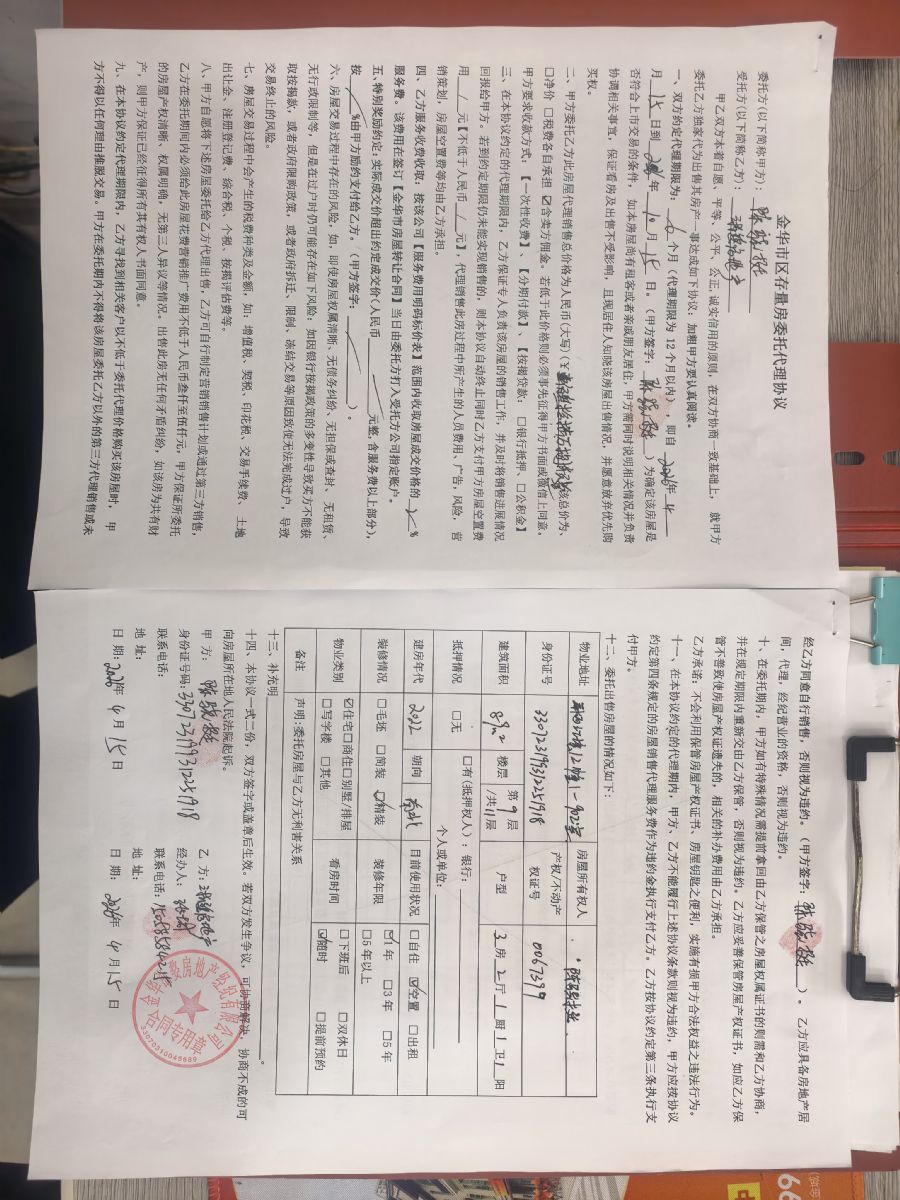 金华市区存量房委托代理协议
委托方(以下简称甲方)：
受托方(以下简称乙方)：
甲乙双方本着自愿、平等、公平、公正，诚实信用的原则，在双方协商一致基础上，就甲方
委托乙方独家代为出售其房产一事达成如下协议：加粗甲方要认真阅读。
一、双方约定代理期限为： 6 个月（代理期限为 12 个月以内），即自 2026 年 4
月 15 日到 2026 年 10 月 15 日。（甲方签字： ）为确定该房屋是
否符合上市交易的条件，如本房屋尚有租客或者亲戚朋友居住，甲方需同时说明相关情况并负责
协调相关事宜，保证看房及出售不受影响，且现居住人知晓该房屋出售情况，并愿意放弃优先购
买权。
二、甲方委托乙方此房屋代理销售总价格为人民币(大写)(￥ )该总价为、
☐净价 ☐税费各自承担 ☑含卖方佣金。若低于此价格则必须事先征得甲方书面或微信上同意。
甲方要求收款方式，【一次性收费】、【分期付款】、【按揭贷款：☐银行抵押、☐公积金】
三、在本协议约定的代理期限内，乙方保证专人负责该房屋的销售工作，并及时将销售进展情况
回报给甲方。若到约定期限仍未能实现销售的，则本协议自动终止同时乙方支付甲方房屋空置费
用 / 元【不低于人民币 / 元】，代理销售此房过程中所产生的人员费用、广告，风险，营
销策划，房屋空置费等均由乙方承担。
四、乙方服务收费收取：按该公司【服务费用明码标价表】范围内收取房屋成交价格的 %
服务费。该费用在签订【金华市房屋转让合同】当日由委托方打入受托方公司指定账户。
五、特别奖励约定：实际成交价超出约定成交价(人民币 元整，含服务费以上部分)，
按 %由甲方励约支付给乙方。（甲方签字： ）。
六、房屋交易过程中存在的风险，如，即使房屋权属清晰、无债务纠纷、无担保或查封、无租赁、
无行政限制等，但是在过户时仍可能存在如下风险：如因银行按揭政策的多变性导致买方不能获
取按揭款，或者政府限购政策，或者政府拆迁、限制、冻结交易等原因致使无法完成过户，导致
交易终止的风险。
七、房屋交易过程中会产生的税费种类及金额，如：增值税、契税、印花税、交易手续费、土地
出让金、注册登记费、综合税、个税、按揭评估费等。
八、甲方自愿将下述房屋委托给乙方代理出售，乙方可自行制定营销销售计划或通过第三方销售，
乙方在委托期间内必须给此房屋花费营销推广费用不低于人民币叁仟至伍仟元，甲方保证所委托
的房屋产权清晰、权属明确，无第三人异议等情况。出售此房无任何矛盾纠纷，如该房为共有财
产，则甲方保证已经征得所有共有权人书面同意。
九、在本协议约定代理期限内，乙方寻找到相关客户以不低于委托代理价格购买该房屋时，甲
方不得以任何理由推脱交易。甲方在委托期内不得将该房屋委托乙方以外的第三方代理销售或未
经乙方同意自行销售，否则视为违约。（甲方签字： ）。乙方应具备房地产居
间，代理，经纪营业的资格，否则视为违约。
十、在委托期内，甲方如有特殊情况需提前拿回由乙方保管之房屋权属证书的则需和乙方协商，
并在规定期限内重新交由乙方保管，否则视为违约。乙方应妥善保管房屋产权证书，如应乙方保
管不善致使房屋产权证遗失的，相关的补办费用由乙方承担。
乙方承诺：不会利用保管房屋产权证书、房屋钥匙之便利，实施有损甲方合法权益之违法行为。
十一、在本协议约定的代理期内，甲方、乙方不能履行上述协议条款则视为违约，甲方应按协议
约定第四条规定的房屋销售代理服务费作为违约金执行支付乙方。乙方按协议约定第三条执行支
付甲方。
十二、委托出售房屋的情况如下：
物业地址 12幢1-902室 房屋所有权人
身份证号 330723199312251918 产权/不动产权证号 0067399
建筑面积 89m2 楼层 第9层/共11层 户型 3 房 2 厅 1 厨 1 卫 1 阳
抵押情况 ☐无 ☐有(抵押权人)：银行：
个人或单位：
建房年代 2022 朝向 南北 目前使用状况 ☐自住 ☑空置 ☐出租
装修情况 ☐毛坯 ☐简装 ☑精装 装修年限 ☑1年 ☐3年 ☐5年
☐5年以上
物业类别 ☑住宅☐商住☐别墅/排屋
☐写字楼 ☐其他 看房时间 ☐下班后 ☐双休日
☑随时 ☐提前预约
备注 声明:委托房屋与乙方无利害关系
十三、补充明 。
十四、本协议一式二份，双方签字或盖章后生效。若双方发生争议，可协商解决，协商不成的可
向房屋所在地人民法院起诉。
甲 方： 乙 方：
身份证号码：330723199312251918 经办人：
联系电话： 联系电话：
地 址： 地 址：
日 期：2026年 4 月 15 日 日 期：2026年 4 月 15 日
合同专用章
33070310045689